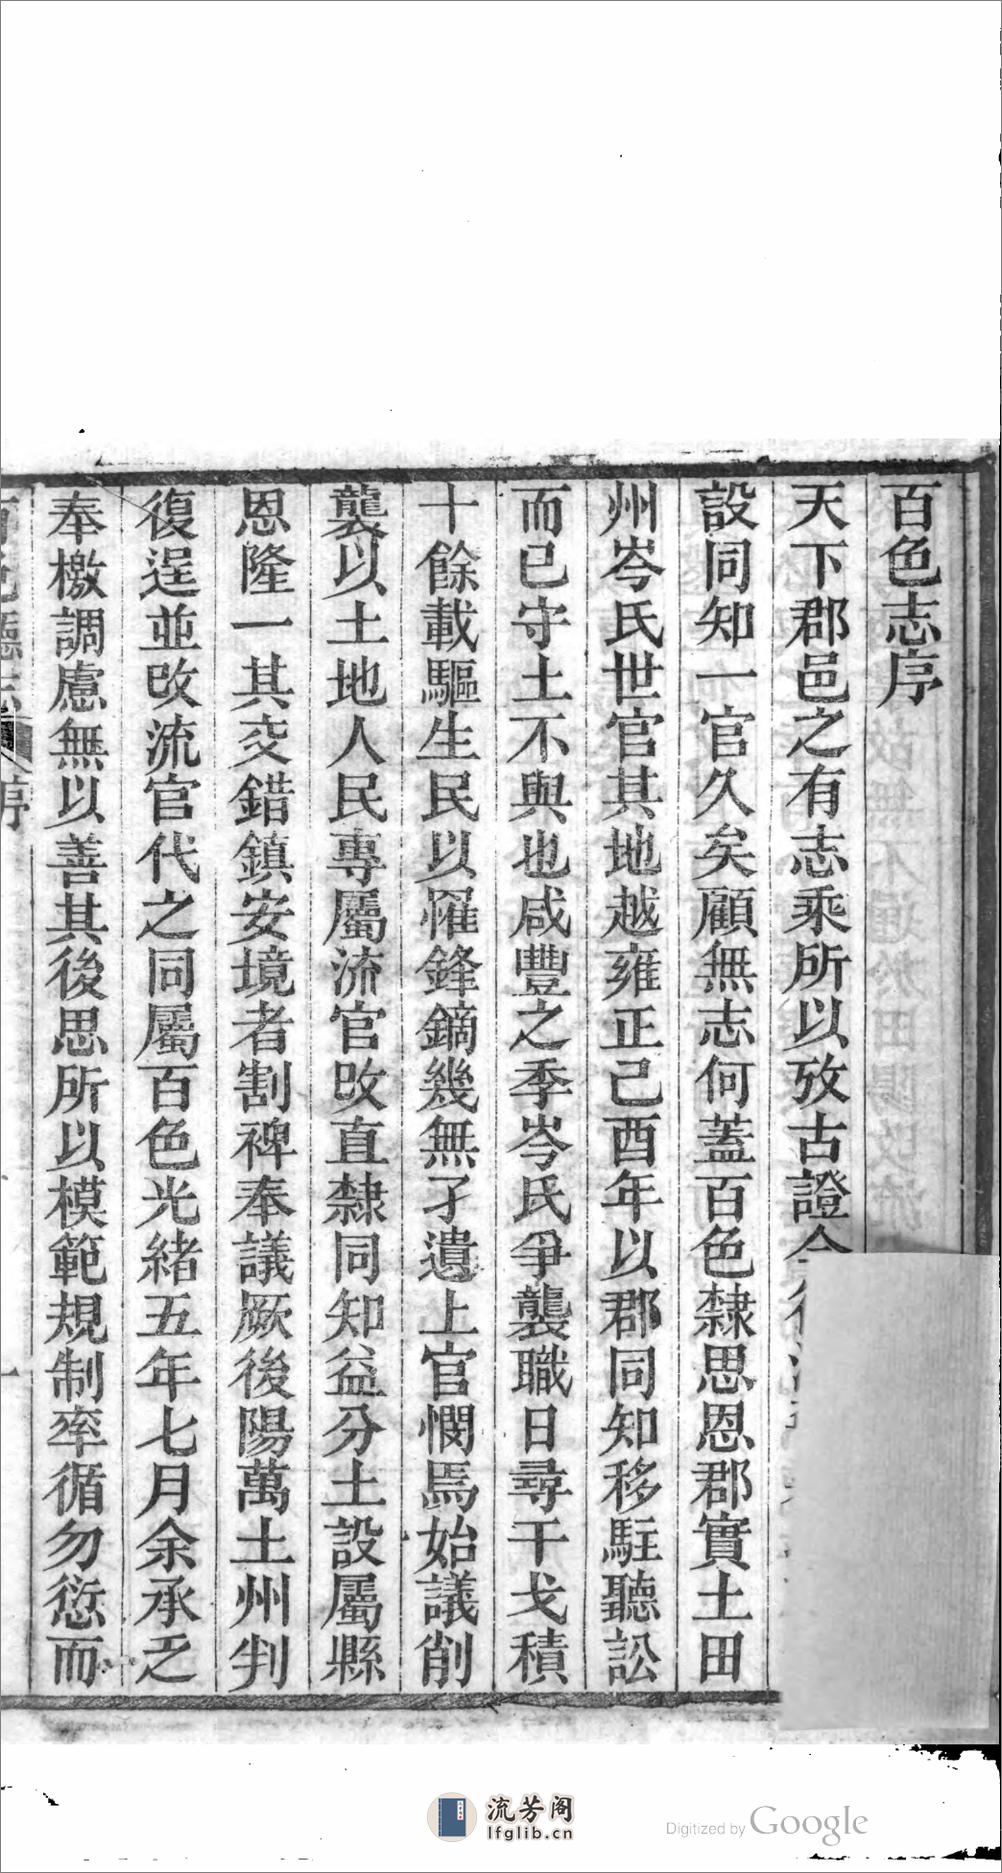 百色志序
天下郡邑之有志乘所以攷古證今
設同知一官久矣顧無志何蓋百色隸思恩郡實土田
州岑氏世官其地越雍正己酉年以郡同知移駐聽訟
而已守土不與也咸豐之季岑氏爭襲職日尋干戈積
十餘載驅生民以罹鋒鏑幾無孑遺上官憫焉始議削
襲以土地人民專屬流官改直隸同知益分土設屬縣
恩隆一其交錯鎮安境者割裨奉議厥後陽萬土州判
復逞並改流官代之同屬百色光緒五年七月余承乏
奉檄調慮無以善其後思所以模範規制率循勿愆而
百色廳志
序
一
流芳阁
lfglib.cn
Digitized by Google